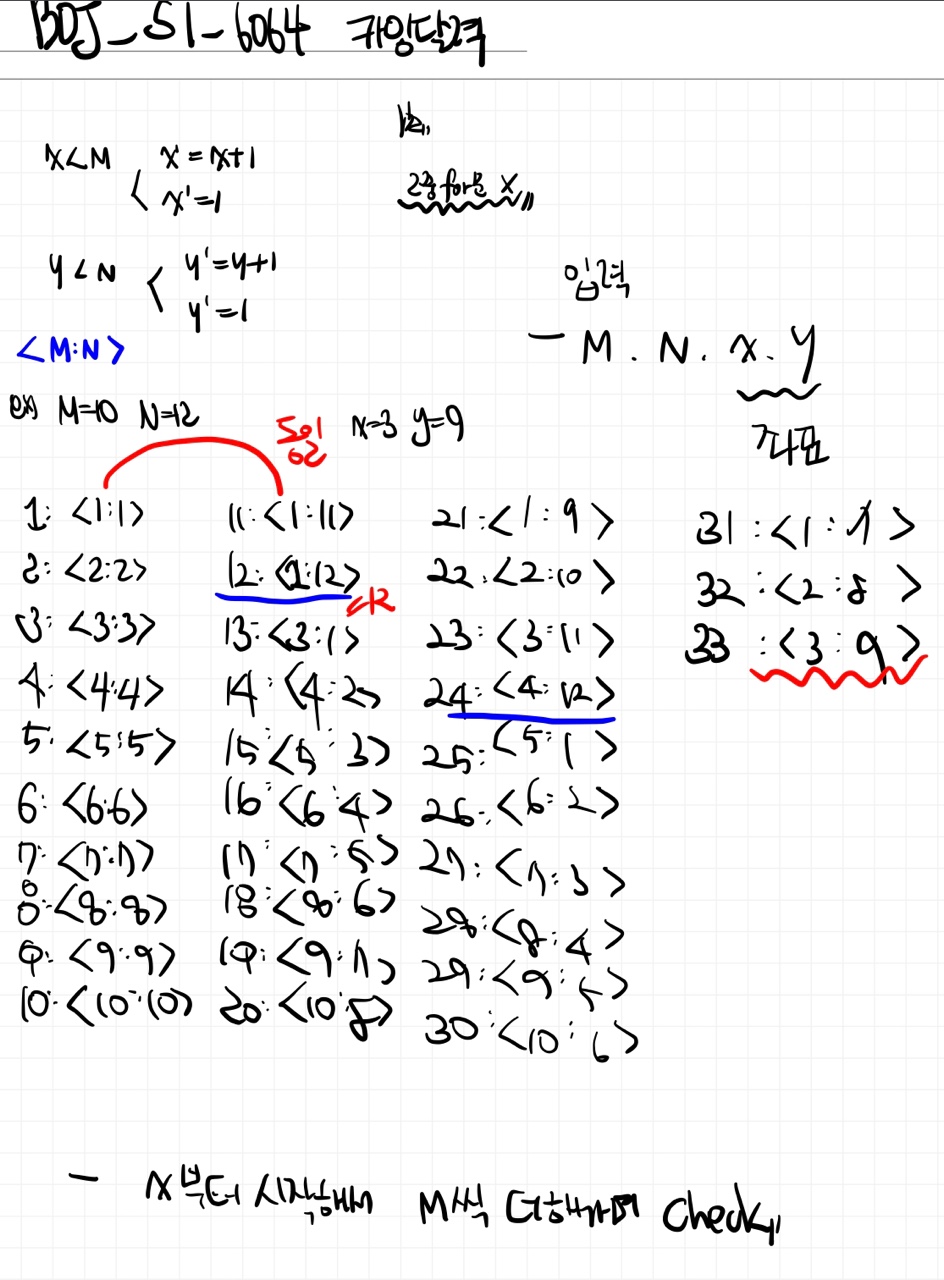 BOJ_S1_6064 카잉달력
x<M < x'=x+1
x'=1
2중 for문 X
y<N < y'=y+1
y'=1
<M:N>
입력
- M. N. x. y
좌표
ex) M=10 N=12 x=3 y=9
1: <1:1>
2: <2:2>
3: <3:3>
4: <4:4>
5: <5:5>
6: <6:6>
7: <7:7>
8: <8:8>
9: <9:9>
10: <10:10>
11: <1:11>
12: <2:12>
≤12
13: <3:1>
14: <4:2>
15: <5:3>
16: <6:4>
17: <7:5>
18: <8:6>
19: <9:7>
20: <10:8>
21: <1:9>
22: <2:10>
23: <3:11>
24: <4:12>
25: <5:1>
26: <6:2>
27: <7:3>
28: <8:4>
29: <9:5>
30: <10:6>
31: <1:7>
32: <2:8>
33: <3:9>
- x부터 시작해서 M씩 더해가며 check